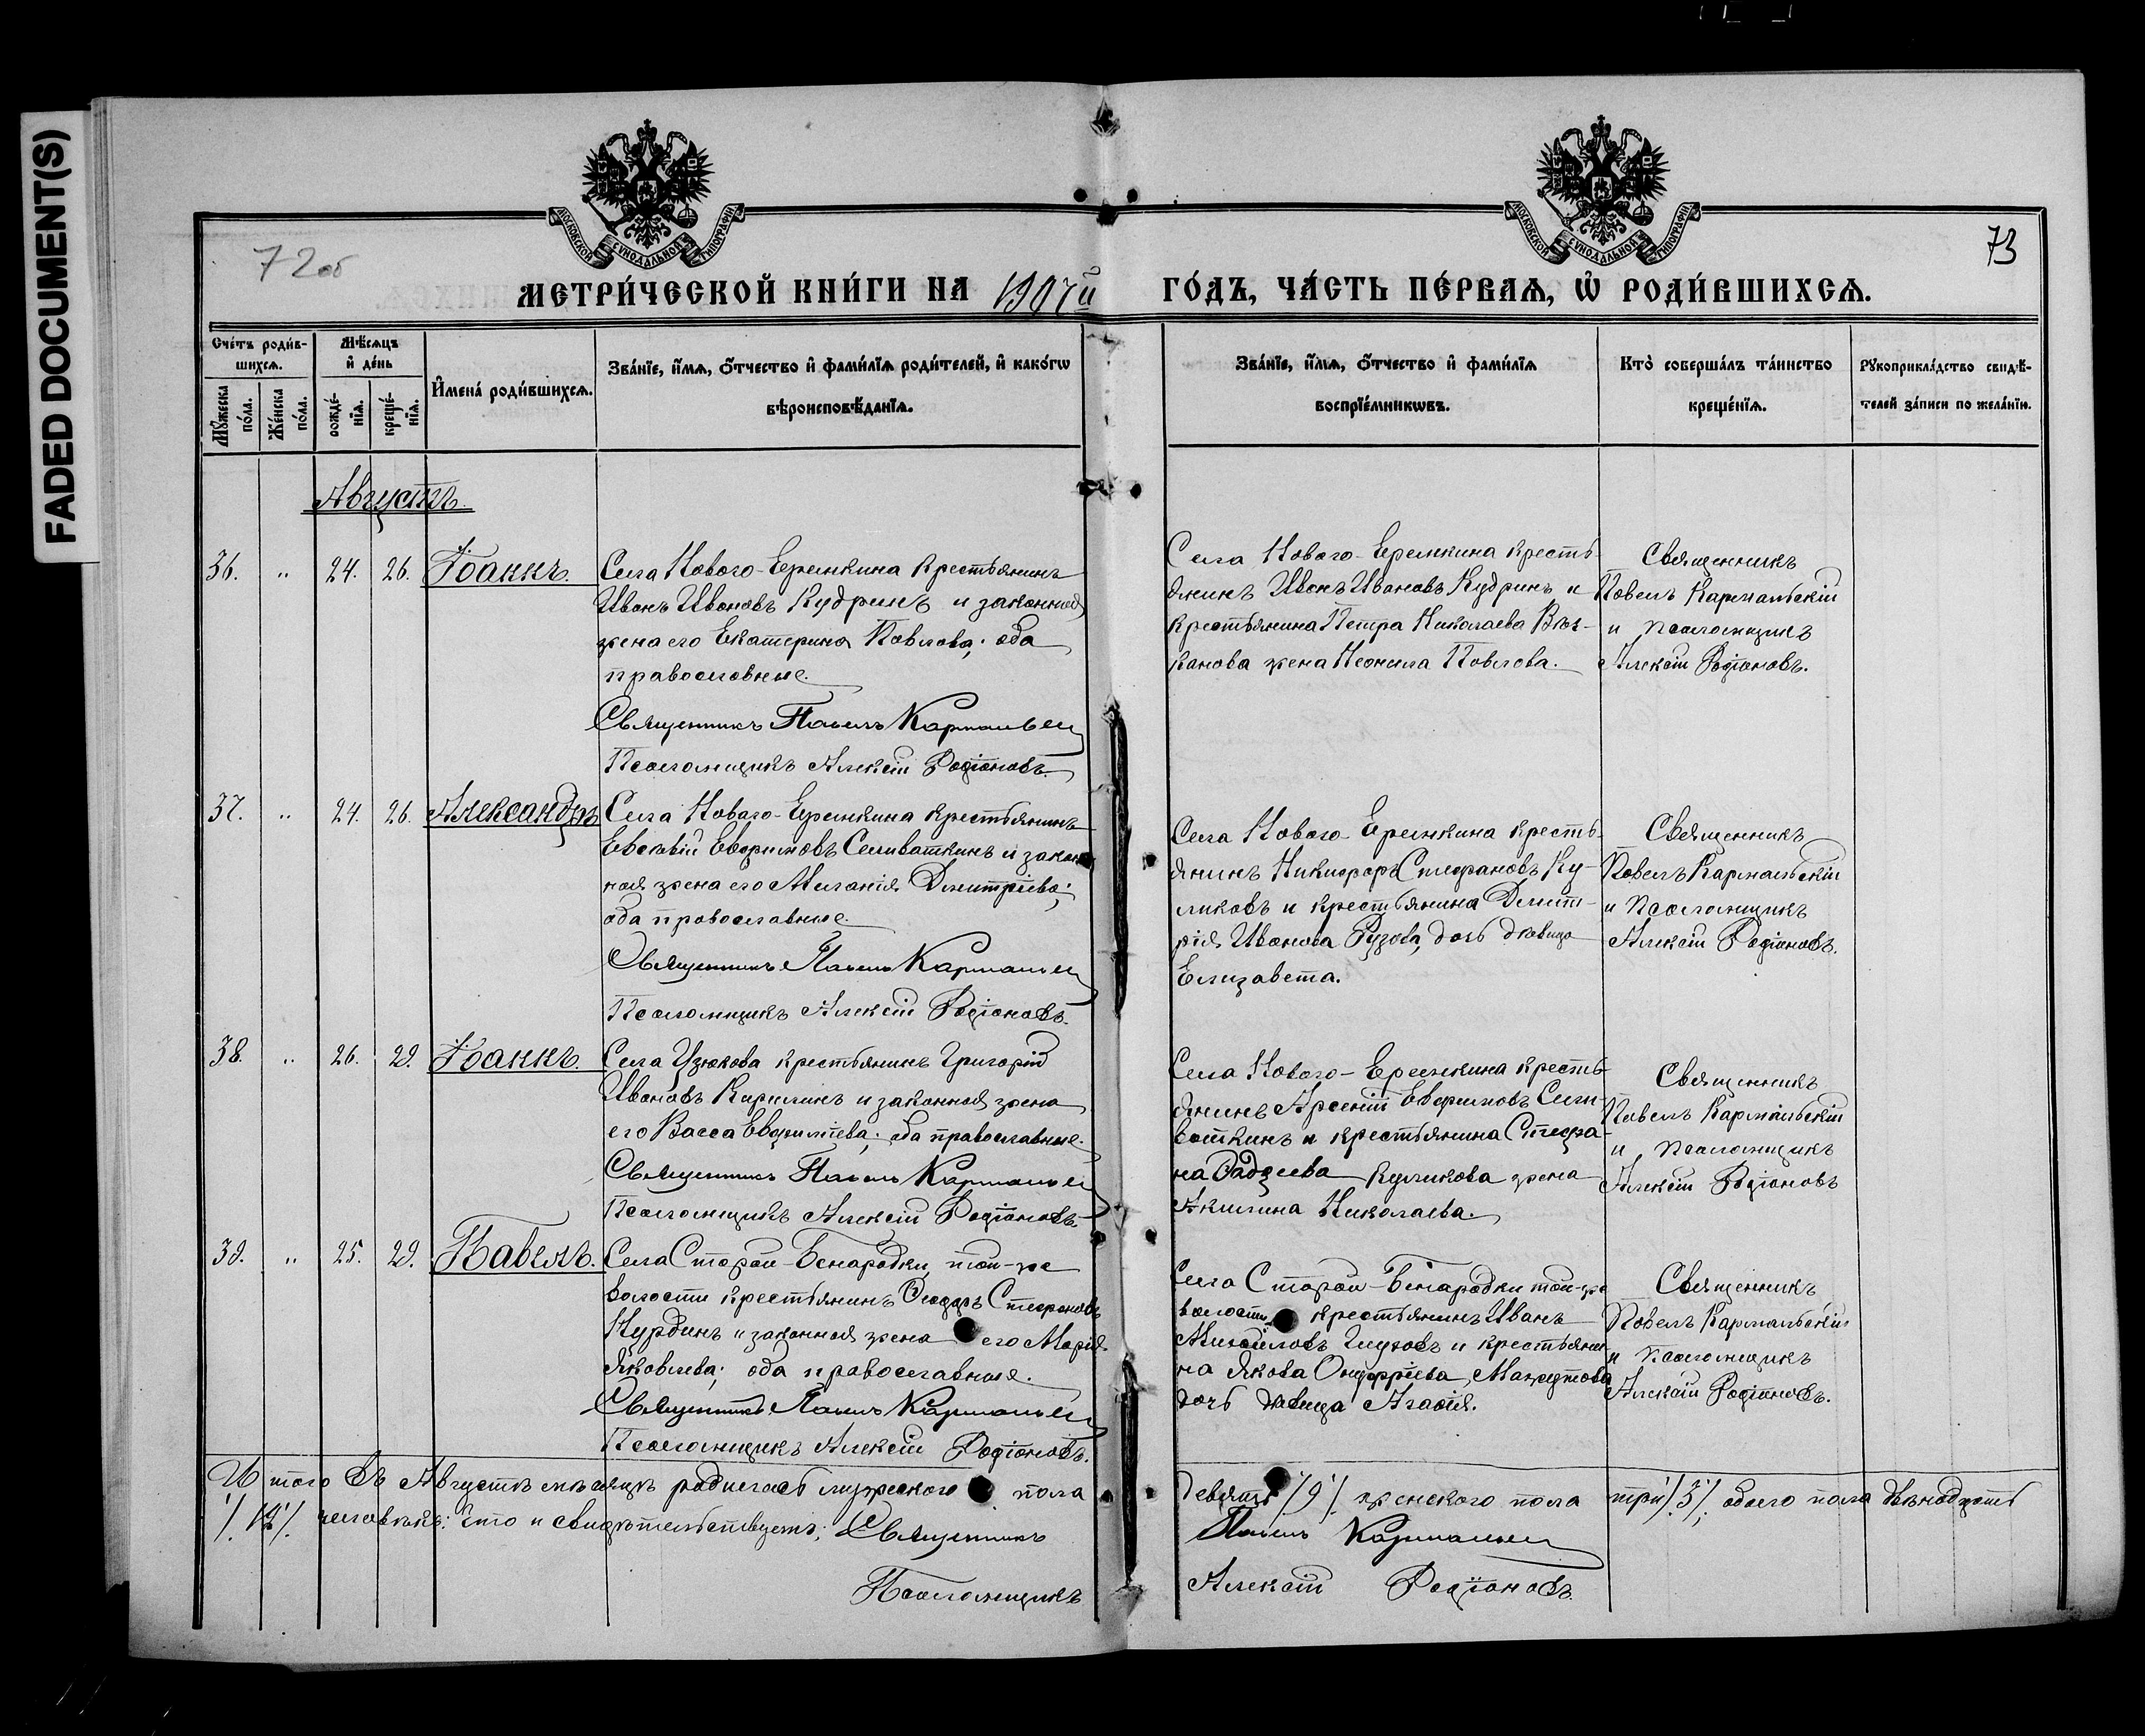 FADED DOCUMENT(S)
МОСКОВСКОЙ СѴНОДАЛЬНОЙ ТИПОГРАФІИ
МОСКОВСКОЙ СѴНОДАЛЬНОЙ ТИПОГРАФІИ
72об
73
МЕТРИ́ЧЕСКОЙ КНИ́ГИ НА 1907й ГО́ДЪ, ЧА́СТЬ ПЕ́РВАѦ, Ѽ РОДИ́ВШИХСѦ.
Сче́тъ роди́в-
шихсѧ.
Мꙋ́жеска по́ла.
Же́нска по́ла.
Мѣ́сѧцъ
и҆ де́нь
рожде́-
нїѧ.
креще́-
нїѧ.
И҆мена̀ роди́вшихсѧ.
Зва́нїе, и҆́мѧ, ѻ҆́тчество и҆ фами́лїѧ роди́телей, и҆ како́гѡ
вѣроисповѣ́данїѧ.
Зва́нїе, и҆́мѧ, ѻ҆́тчество и҆ фами́лїѧ
воспрїе́мникѡвъ.
Кто̀ соверша́лъ та́инство
креще́нїѧ.
Рꙋкоприкла́дство свидѣ́-
телей за́писи по жела́нїю.
Августъ.
36. " 24. 26. Іоаннъ.
Села Нового-Еремкина крестьянинъ
Иванъ Ивановъ Кудринъ и законная
жена его Екатерина Павлова; оба
православные.
Священникъ Павелъ Кармальскій
Псаломщикъ Алексій Родіоновъ.
Села Нового-Еремкина кресть-
янинъ Иванъ Ивановъ Кудринъ и
крестьянина Петра Николаева
жена Неонила Павлова.
Священникъ
Павелъ Кармальскій
и псаломщикъ
Алексій Родіоновъ.
37. " 24. 26. Александръ
Села Новаго-Еремкина крестьянинъ
Евсевій Евфимовъ Селиваткинъ и закон
ная жена его Меланія Димитріева;
оба православные.
Священникъ Павелъ Кармальскій
Псаломщикъ Алексій Родіоновъ.
Села Нового-Еремкина кресть-
янинъ Никифоръ Стефановъ Ку-
ликовъ и крестьянина Димит-
рія Иванова Рузова, дочь дѣвица
Елизавета.
Священникъ
Павелъ Кармальскій
и псаломщикъ
Алексій Родіоновъ.
38. " 26. 29. Іоаннъ.
Села Узюкова крестьянинъ Григорій
Ивановъ Кирилинъ и законная жена
его Васса Евфиміева; оба православные.
Священникъ Павелъ Кармальскій
Псаломщикъ Алексій Родіоновъ.
Села Нового-Еремкина кресть-
янинъ Арсеній Евфимовъ Сели-
ваткинъ и крестьянина Стефа-
на Фадѣева Куликова жена
Акилина Николаева.
Священникъ
Павелъ Кармальскій
и псаломщикъ
Алексій Родіоновъ
39. " 25. 29. Павелъ.
Села Старой-Бинарадки, той-же
волости крестьянинъ Ѳеодоръ Стефановъ
Нурдинъ и законная жена его Марія
Яковлева; оба православные.
Священникъ Павелъ Кармальскій
Псаломщикъ Алексій Родіоновъ.
Села Старой-Бинарадки той-же
волости крестьянинъ Иванъ
Михайловъ Глуховъ и крестьяни-
на Якова Онуфріева Мажутова
дочь дѣвица Агафія.
Священникъ
Павелъ Кармальскій
и псаломщикъ
Алексій Родіоновъ.
Итого въ Августѣ мѣсяцѣ родилось мужескаго пола девять /9/. женского пола три /3/. обоего пола двѣнадцать
/12/. человѣкъ; что и свидѣтельствуемъ; Священникъ Павелъ Кармальскій
Псаломщикъ Алексій Родіоновъ.